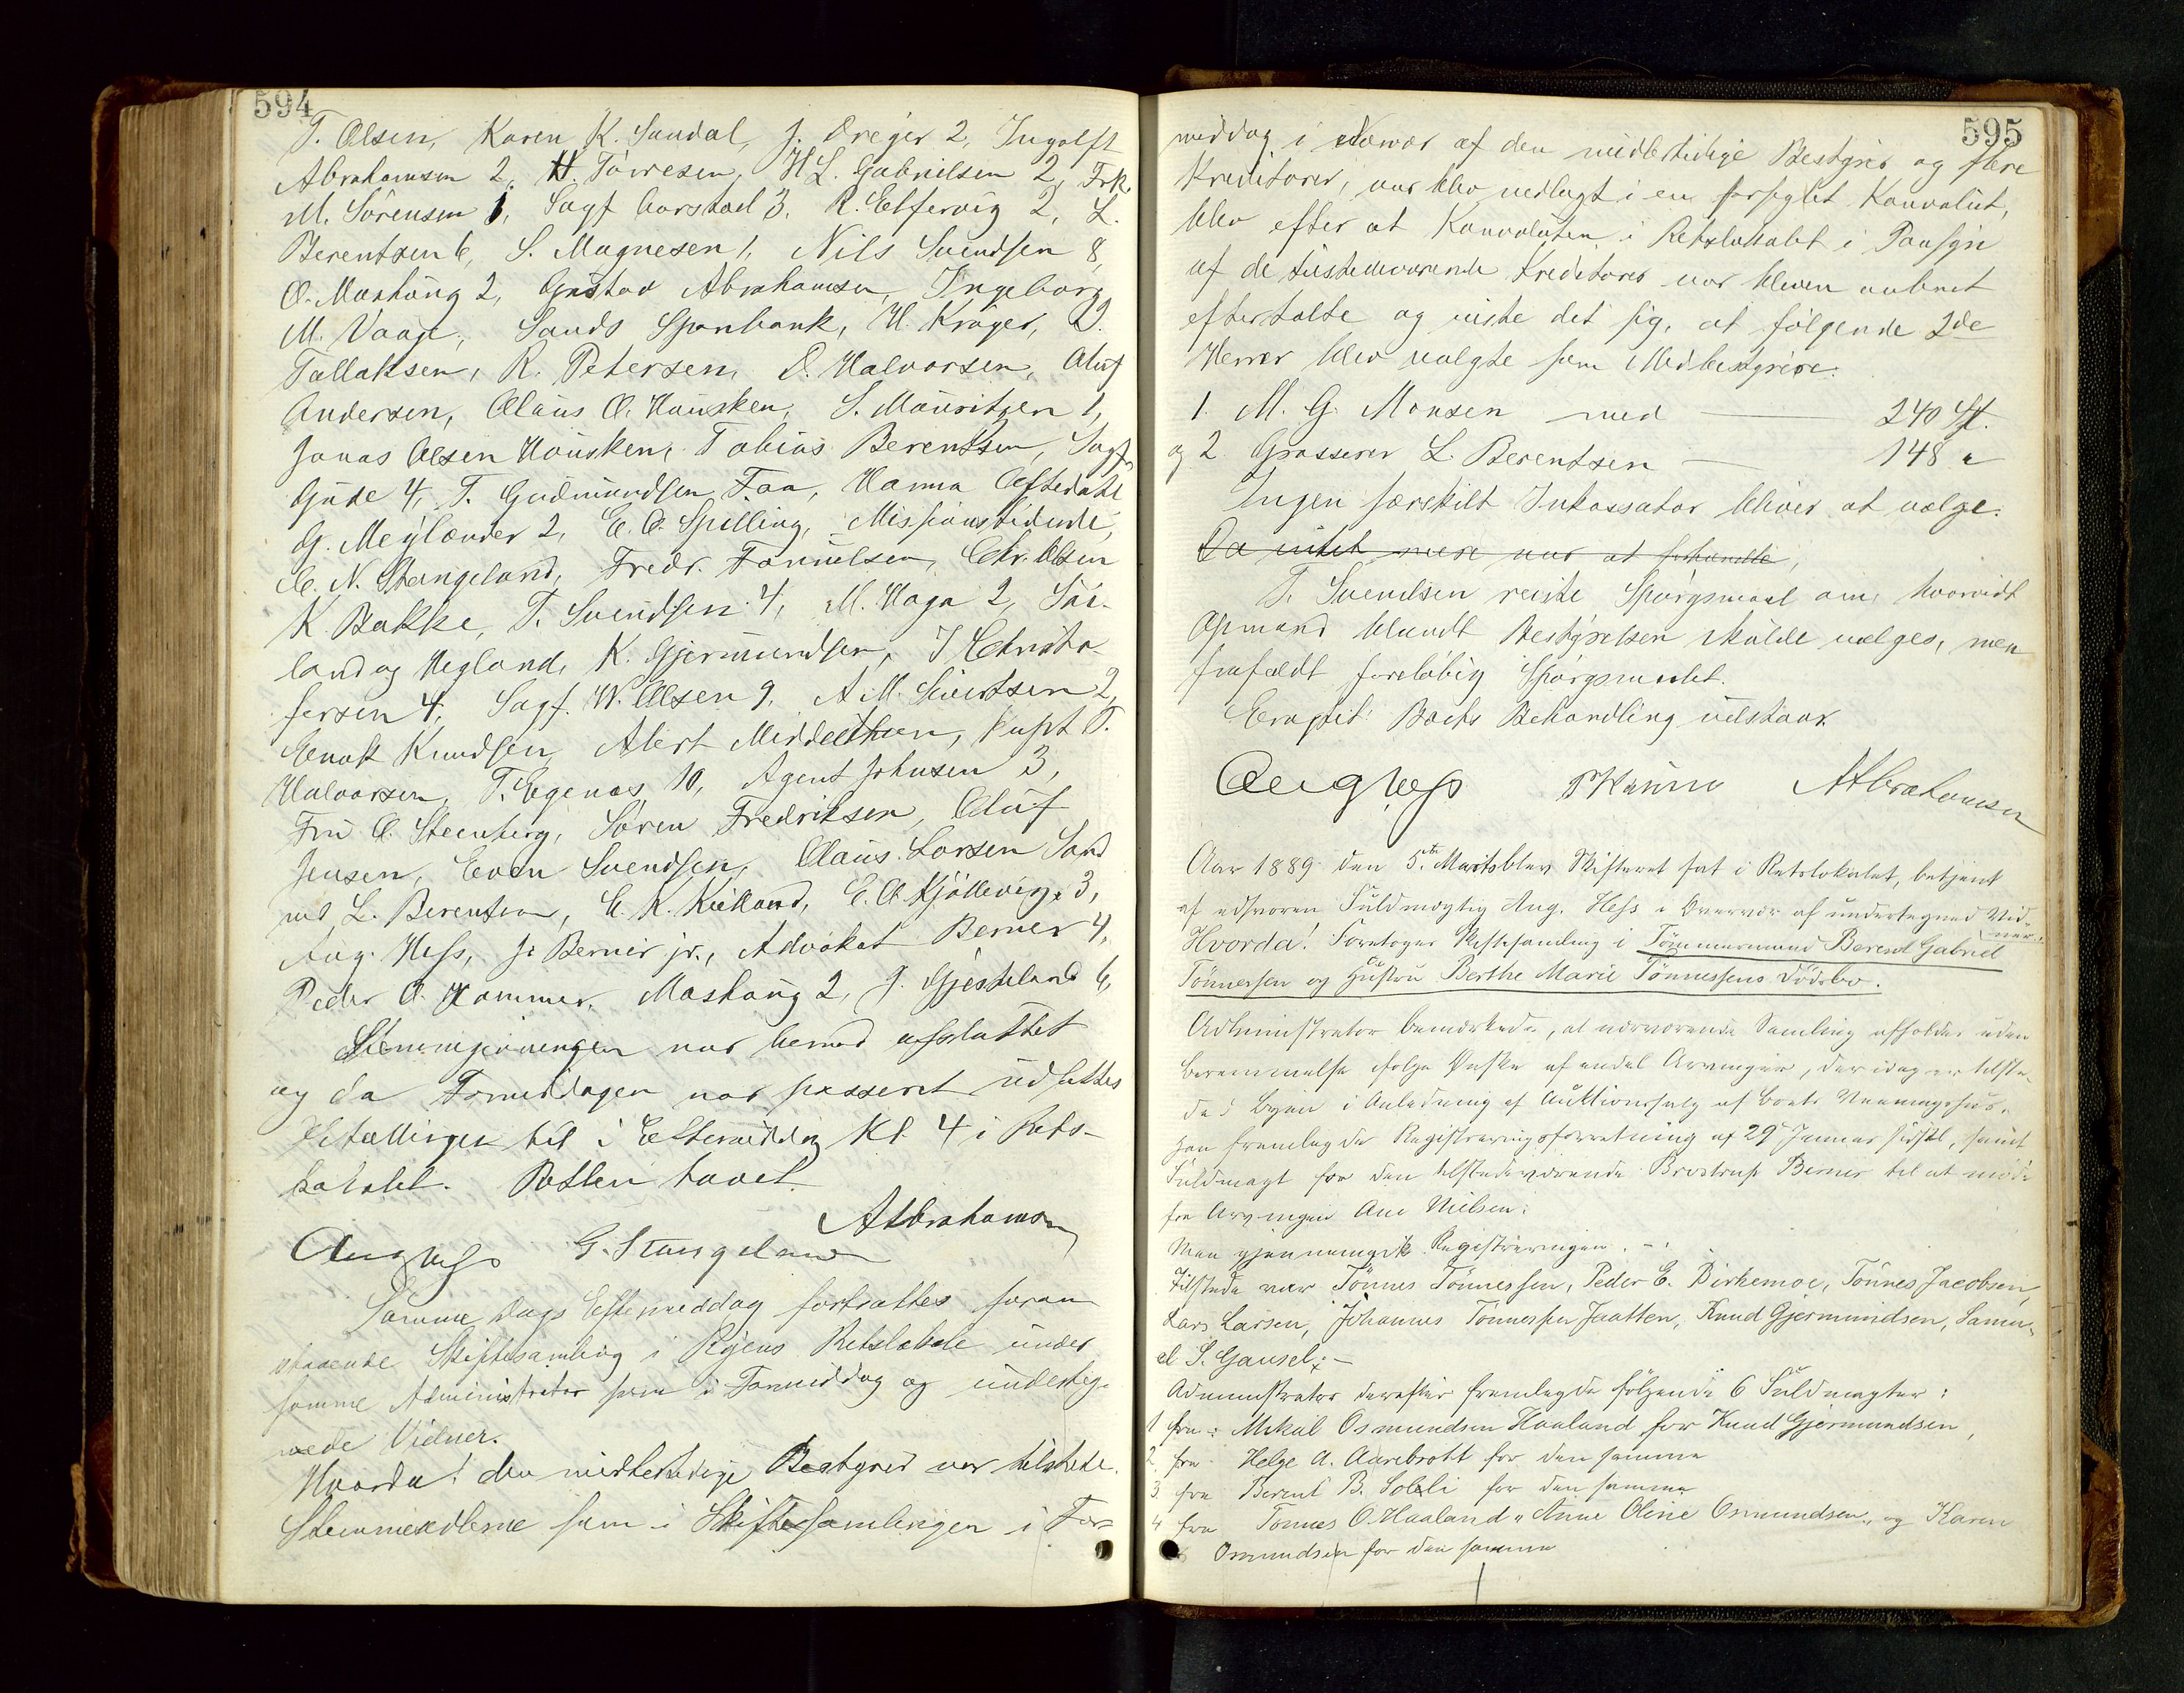 594
T. Olsen, Karen K. Sandal, J. Dreyer 2, Ingolft
Abrahamsen 2, H. Törresen, H L. Gabrielsen 2, Frk.
M. Sörensen 1, Sagf Aarstad 3, R. Elfervig 2, L.
Berentsen 6, S. Magnesen 1, Nils Svendsen 8,
O. Mashaug 2, Gustav Abrahamsen, Ingeborg
M. Vaage, Sands Sparebank, H. Kröger, D.
Tallaksen, R. Petersen, D. Halvorsen, Oluf
Andersen, Olaus O. Hausken, S. Mauritzen 1,
Jonas Olsen Hausken, Tobias Berentsen, Sagf.
Gude 4, T. Gudmundsen Faa, Hanna Oftedahl
G. Meylænder 2, E. O. Spilling, Missionstidende,
C. N. Stangeland, Fredr. Chr. Olsen
K. Bakke, T. Svendsen 4, M. Haga 2, Sör-
land og Hegland, K. Gjermundsen, J Christo-
fersen 4, Sagf. W. Olsen 9, A M. Sivertsen 2,
Enok Knudsen, Albert Middelthon, Kapt T.
Halvorsen, T. Egenæs 10, Agent Johnsen 3,
Fru O. Steenberg, Sören Fredriksen, Oluf
Jensen, Even Svendsen, Olaus Larsen Sand
ved L. Berentsen, E. K. Kielland, E. O. Kjöllevig 3,
Aug. Hess, J. Berner jr., Advokat Berner 4,
Peder O. Hammer, Mashaug 2, J. Gjesteland 6,
Stemmegivningen var hermed afsluttet
og da Formiddagen var passeret udsattes
Optællingen til i Eftermiddag Kl. 4 i Rets-
lokalet. Retten hævet.
A Abrahamsen
Aug Hess G. Stangeland
Samme Dags Eftermiddag fortsattes foran
staaende Skiftesamling i Byens Retslokale under
samme Administrator som i Formiddag og underteg-
nede Vidner.
Hvorda! den midlertidige Bestyrer var tilstede.
Stemmesedlerne som i Skiftesamlingen i For-
595
middag i Nærvær af den midlertidige Bestyrer og flere
Kreditorer, var blev nedlagt i en forseglet Konvolut,
blev efter at Konvoluten i Retslokalet i Paasyn
af de tilstedeværende Kreditorer var bleven aabnet
eftertalte og viste det sig, at følgende 2de
Herrer blev valgte som Medbestyrere:
1. M. G. Monsen med 240 St.
og 2 Grosserer L. Berentsen 148 "
Ingen særskilt Inkassator bliver at vælge.
Da intet mere var at forhandle,
T. Svendsen reiste Spørgsmaal om, hvorvidt
Opmand blandt Bestyrelsen skulde vælges, men
frafaldt foreløbig Spørgsmaalet.
Boets Behandling udstaar.
Aug Hess A Abrahamsen
Aar 1889 den 5te Marts blev Skifteret sat i Retslokalet, betjent
af edsvoren Fuldmægtig Aug. Hess i Overvær af undertegned Vid-
ner.
Hvorda! Foretoges Skiftesamling i Tømmermand Berent Gabriel
Tönnessen og Hustru Berthe Marie Tönnessens Dödsbo.
Administrator bemærkede, at nærværende Samling afholdes uden
Berammelse ifølge Ønske af endel Arvinger, der idag er tilste-
de i Byen i Anledning af Auktionssalg af Boets Vaaningshus.
Han fremlagde Registreringsforretning af 29 Januar sidstl, samt
Fuldmagt for den tilstedeværende Brostrup Berner til at møde
for Arvingen Ane Nielsen.
Man gjennemgik Registreringen. -
Tilstede var Tönnes Tönnessen, Peder E. Birkemoe, Tönnes Jacobsen,
Lars Larsen, Johannes Tönnessen Jaatten, Knud Gjermundsen, Samu-
el S. Gausel. -
Administrator derefter fremlagde følgende 6 Fuldmagter:
1 fra Mikal Osmundsen Haaland for Knud Gjermundsen,
2. fra Helge A. Aarebrott for den samme
3. fra Berent B. Solli for den samme
4 fra Tönnes O. Haaland, Anne Oline Osmundsen, og Karen
Osmundsen for den samme